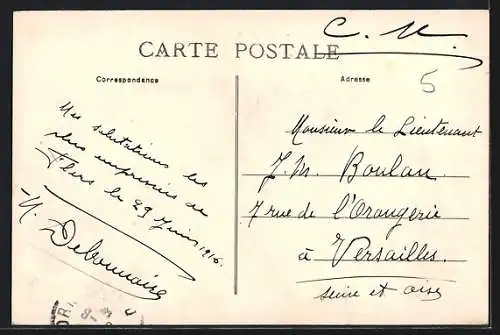 C. M.
CARTE POSTALE
Correspondance
Adresse
5
Mes salutations les
plus empressées de
Flers le 29 Juin 1916.
Monsieur le Lieutenant
J. M. Boulan
7 rue de l'Orangerie
à Versailles.
Seine et Oise